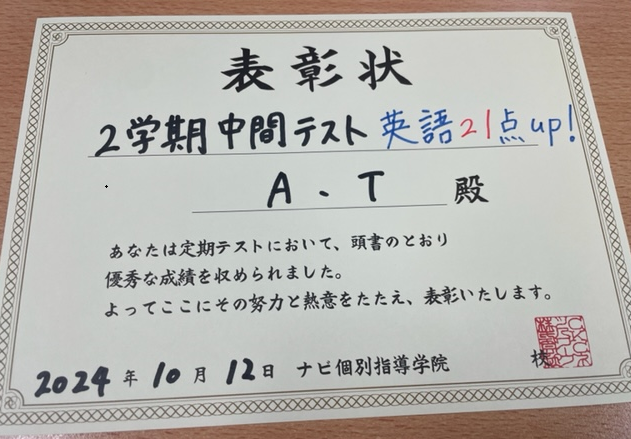 表彰状
2学期中間テスト 英語21点up!
A.T 殿
あなたは定期テストにおいて、頭書のとおり
優秀な成績を収められました。
よってここにその努力と熱意をたたえ、表彰いたします。
2024 年 10 月 12 日 ナビ個別指導学院